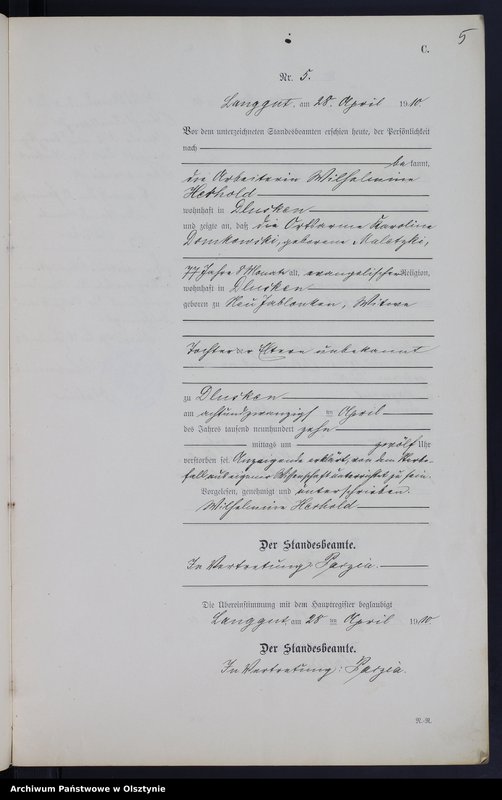 5
C.
Nr. 5.
Langgut, am 28. April 1910.
Vor dem unterzeichneten Standesbeamten erschien heute, der Persönlichkeit
nach
be kannt,
die Arbeiterin Wilhelmine
Herhold
wohnhaft in Dlusken
und zeigte an, daß die Ortsarme Karoline
Domkowski, geborene Maletzki,
77 Jahre 8 Monate alt, evangelischer Religion,
wohnhaft in Dlusken
geboren zu Neu Jablonken, Witwe
Tochter der Eltern unbekannt
zu Dlusken
am achtundzwanzigsten April
des Jahres tausend neunhundert zehn
mittags um zwölf Uhr
verstorben sei. Anzeigende erklärt, von dem Sterbe-
fall aus eigener Wissenschaft unterrichtet zu sein.
Vorgelesen, genehmigt und unterschrieben.
Wilhelmine Herhold
Der Standesbeamte.
In Vertretung
Die Übereinstimmung mit dem Hauptregister beglaubigt
Langgut, am 28 ten April 1910.
Der Standesbeamte.
In Vertretung:
N.-R.
Archiwum Państwowe w Olsztynie